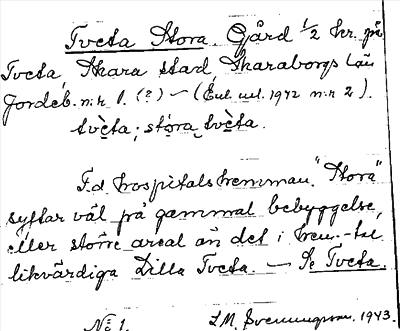 Tveta Stora. Gård 1/2 hr. på
Tveta, Skara stad, Skaraborgs län
Jordeb. n:r 1. (?) — (Enl. utl. 1942 n:r 2).
tvèta; stóra tvèta.
F.d. hospitalshemman. "Stora"
syftar väl på gammal bebyggelse,
eller större areal än det i hem.-tal
likvärdiga Lilla Tveta. — Se Tveta.
No 1.
I. M. Svenungsson. 1943.